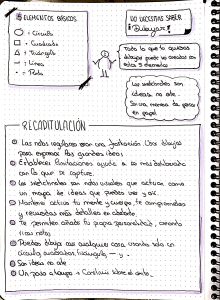 5 ELEMENTOS BÁSICOS
○ = Círculo
□ = Cuadrado
△ = Triángulo
— = Línea
• = Punto
¡NO NECESITAS SABER
Dibujar!
Todo lo que tú quieras
dibujar puede ser creado con
estos 5 elementos
Los sketchnotes son
ideas, no arte.
Sirve menos de pensar
en papel
RECAPITULACIÓN
Las notas visuales son una
para expresar tus grandes ideas
Establecer limitaciones ayuda a
con lo que se captura.
Los sketchnotes son notas visuales que actúan como
un mapa de ideas que puedes ver y oír.
Mantiene activa tu mente y cuerpo, te comprometes
y recuerdas más detalles en adelante.
Te permite añadir tu propia personalidad, creando
ricas notas.
Puedes dibujar casi cualquier cosa usando solo un
círculo, cuadrado, triángulo, — y .
Son ideas no arte
Un paso a tiempo + Continúa sobre el anterior.